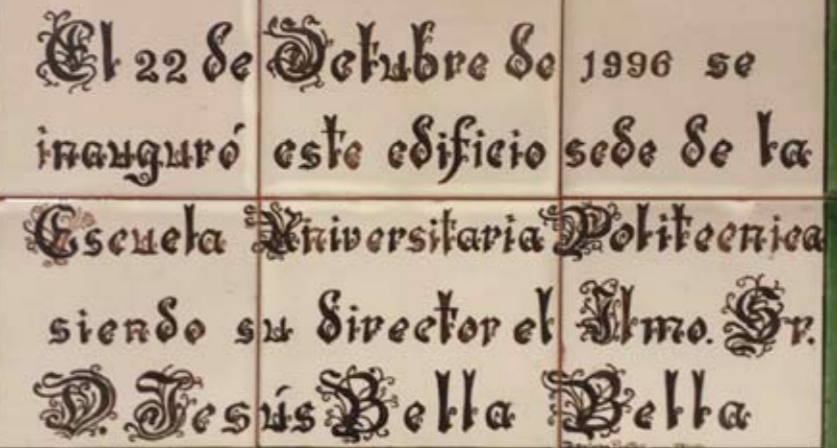 El 22 de Octubre de 1996 se
inauguró este edificio sede de la
Escuela Universitaria Politecnica
siendo su director el Ilmo. Sr.
D. Jesús Bella Bella